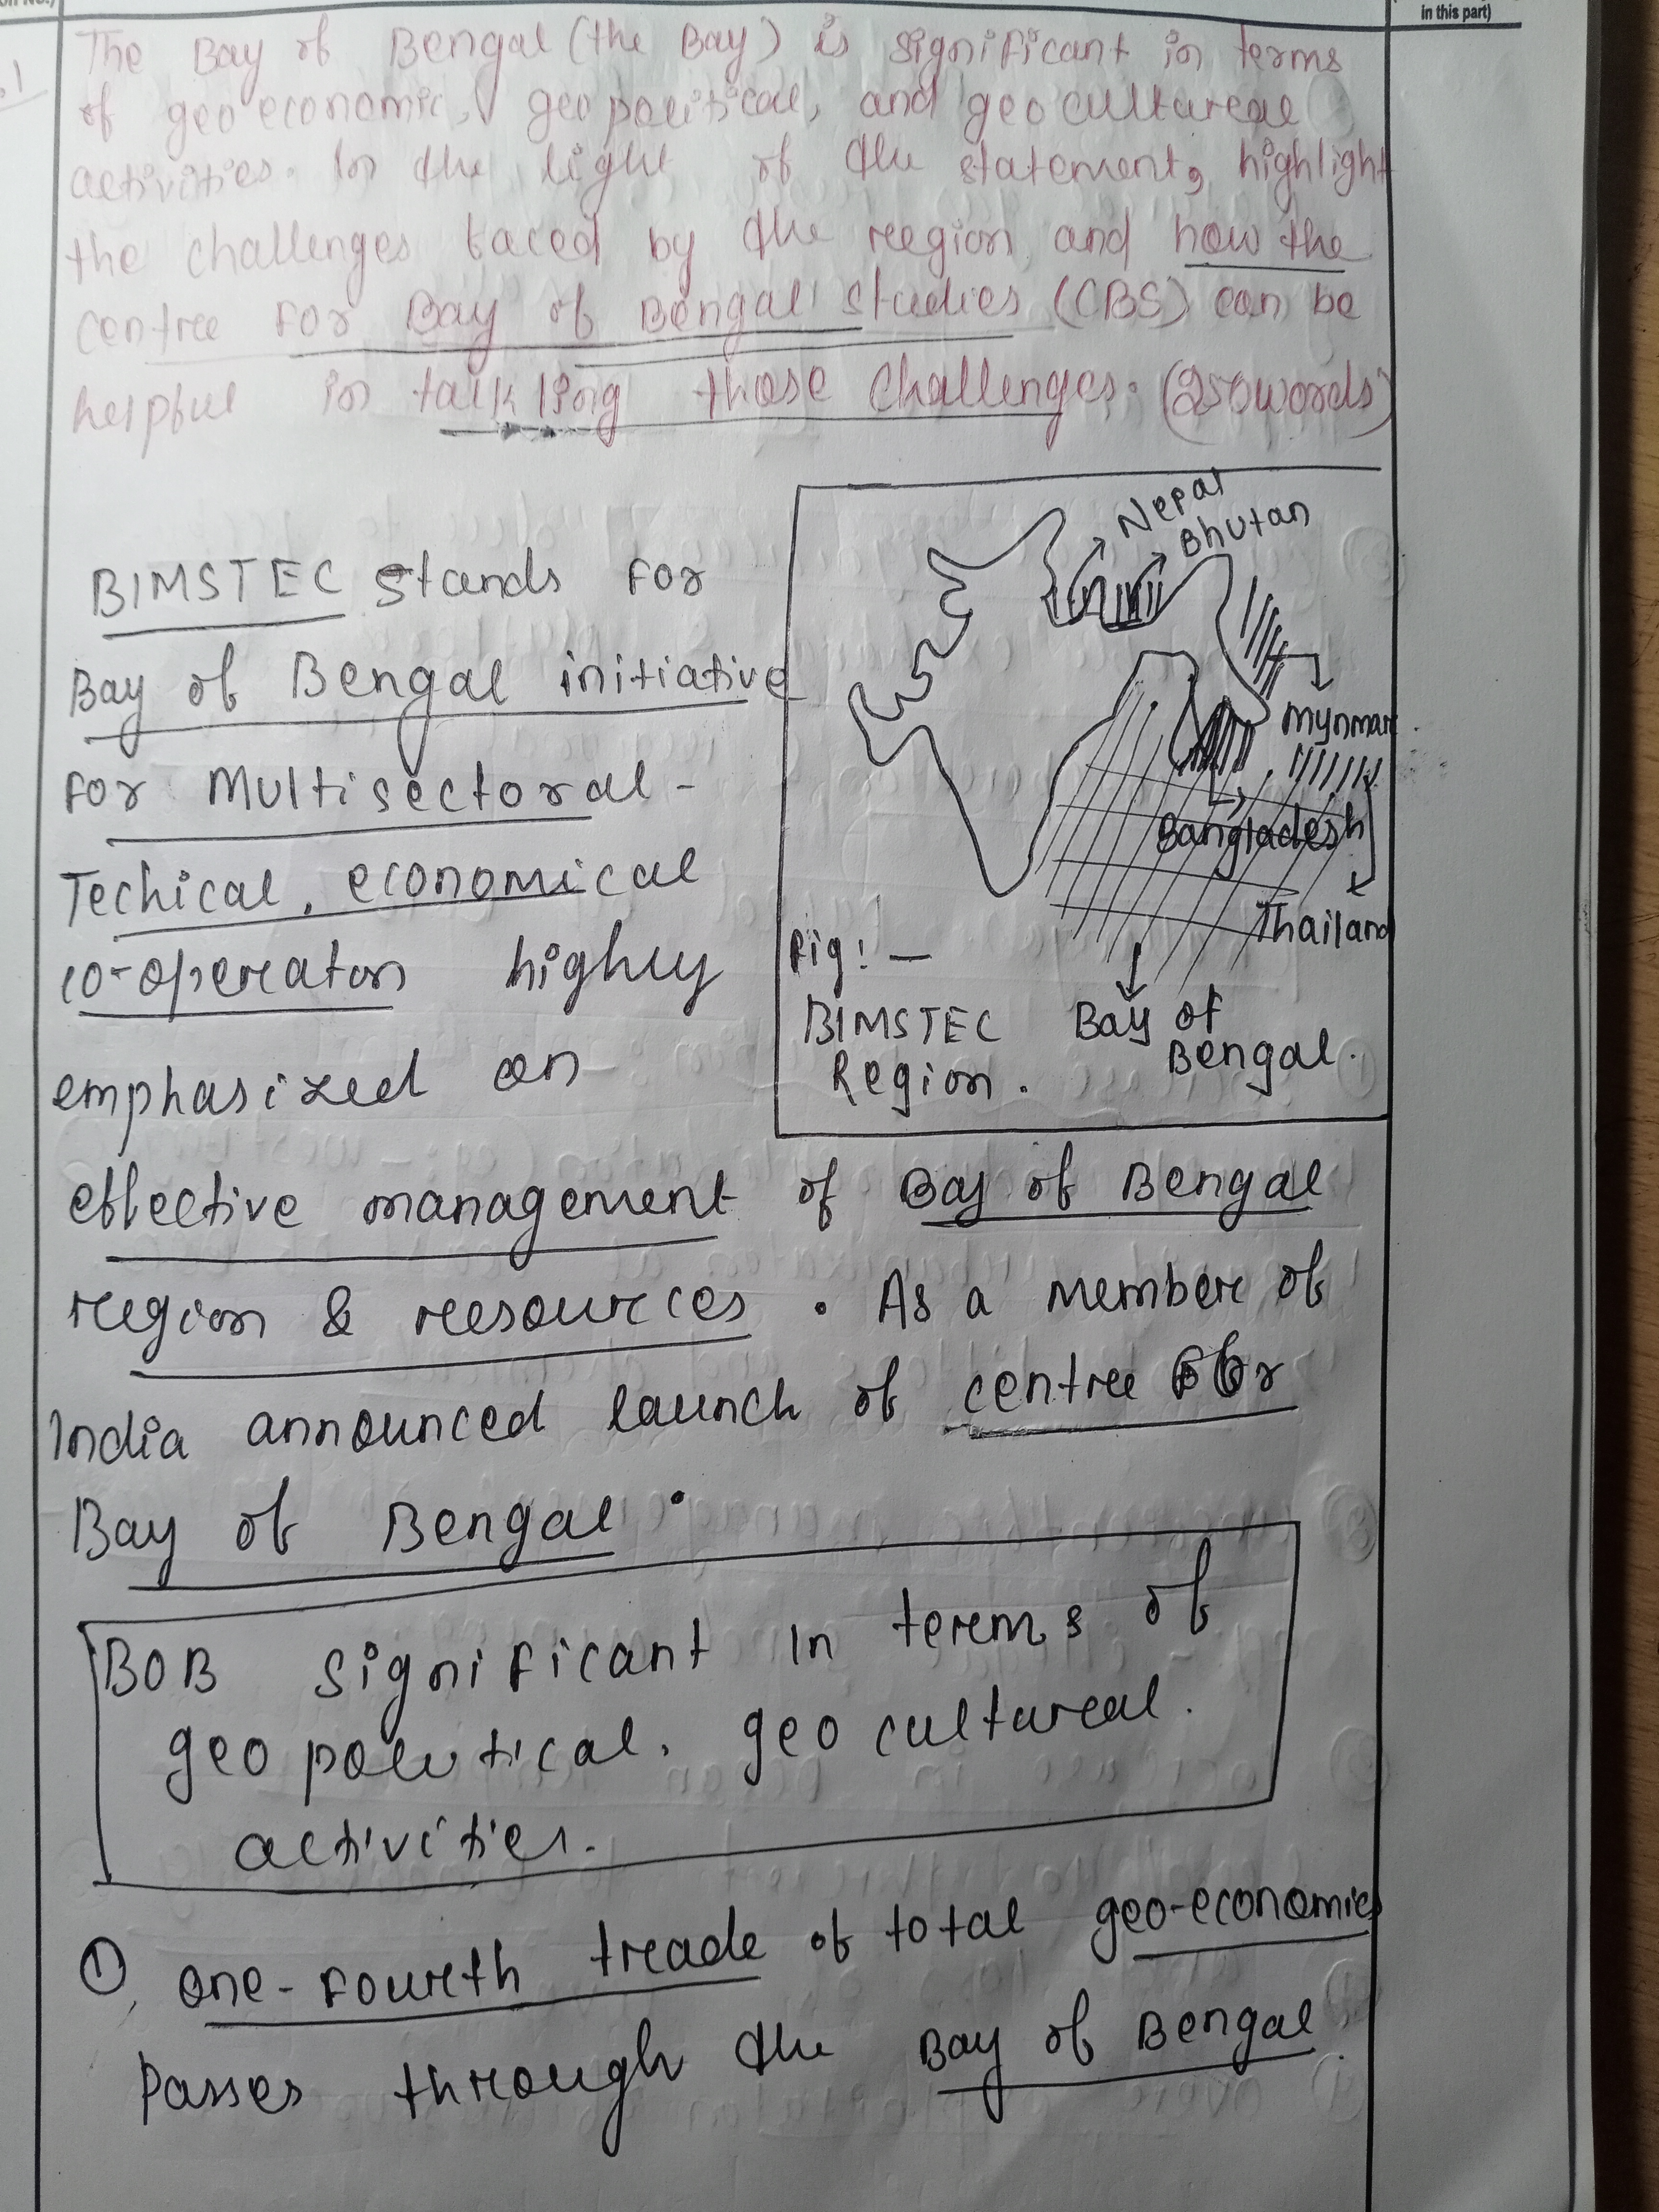 in this part)
The Bay of Bengal (the Bay) is significant in terms
of geo economic, geo political, and geo cultureal
activities. In the light of the statement, highlight
the challenges faced by the reegion and how the
centree for Bay of Bengal studies (CBS) can be
helpful in talkling those challenges. (250 words)
Nepal
Bhutan
BIMSTEC stands for
Bay of Bengal initiative
for Multisectoral-
Techical, economical
co-opereaton highly
emphasized on
Mynmar
Bangladesh
Thailand
Fig:-
BIMSTEC
Region.
Bay of
Bengal.
effective management of Bay of Bengal
reegion & reesources. As a membere of
India announced launch of centree for
Bay of Bengal.
BOB significant in terems of
geo political, geo cultureal.
activities.
① one-foureth treade of total geo-economics
Passes through the Bay of Bengal